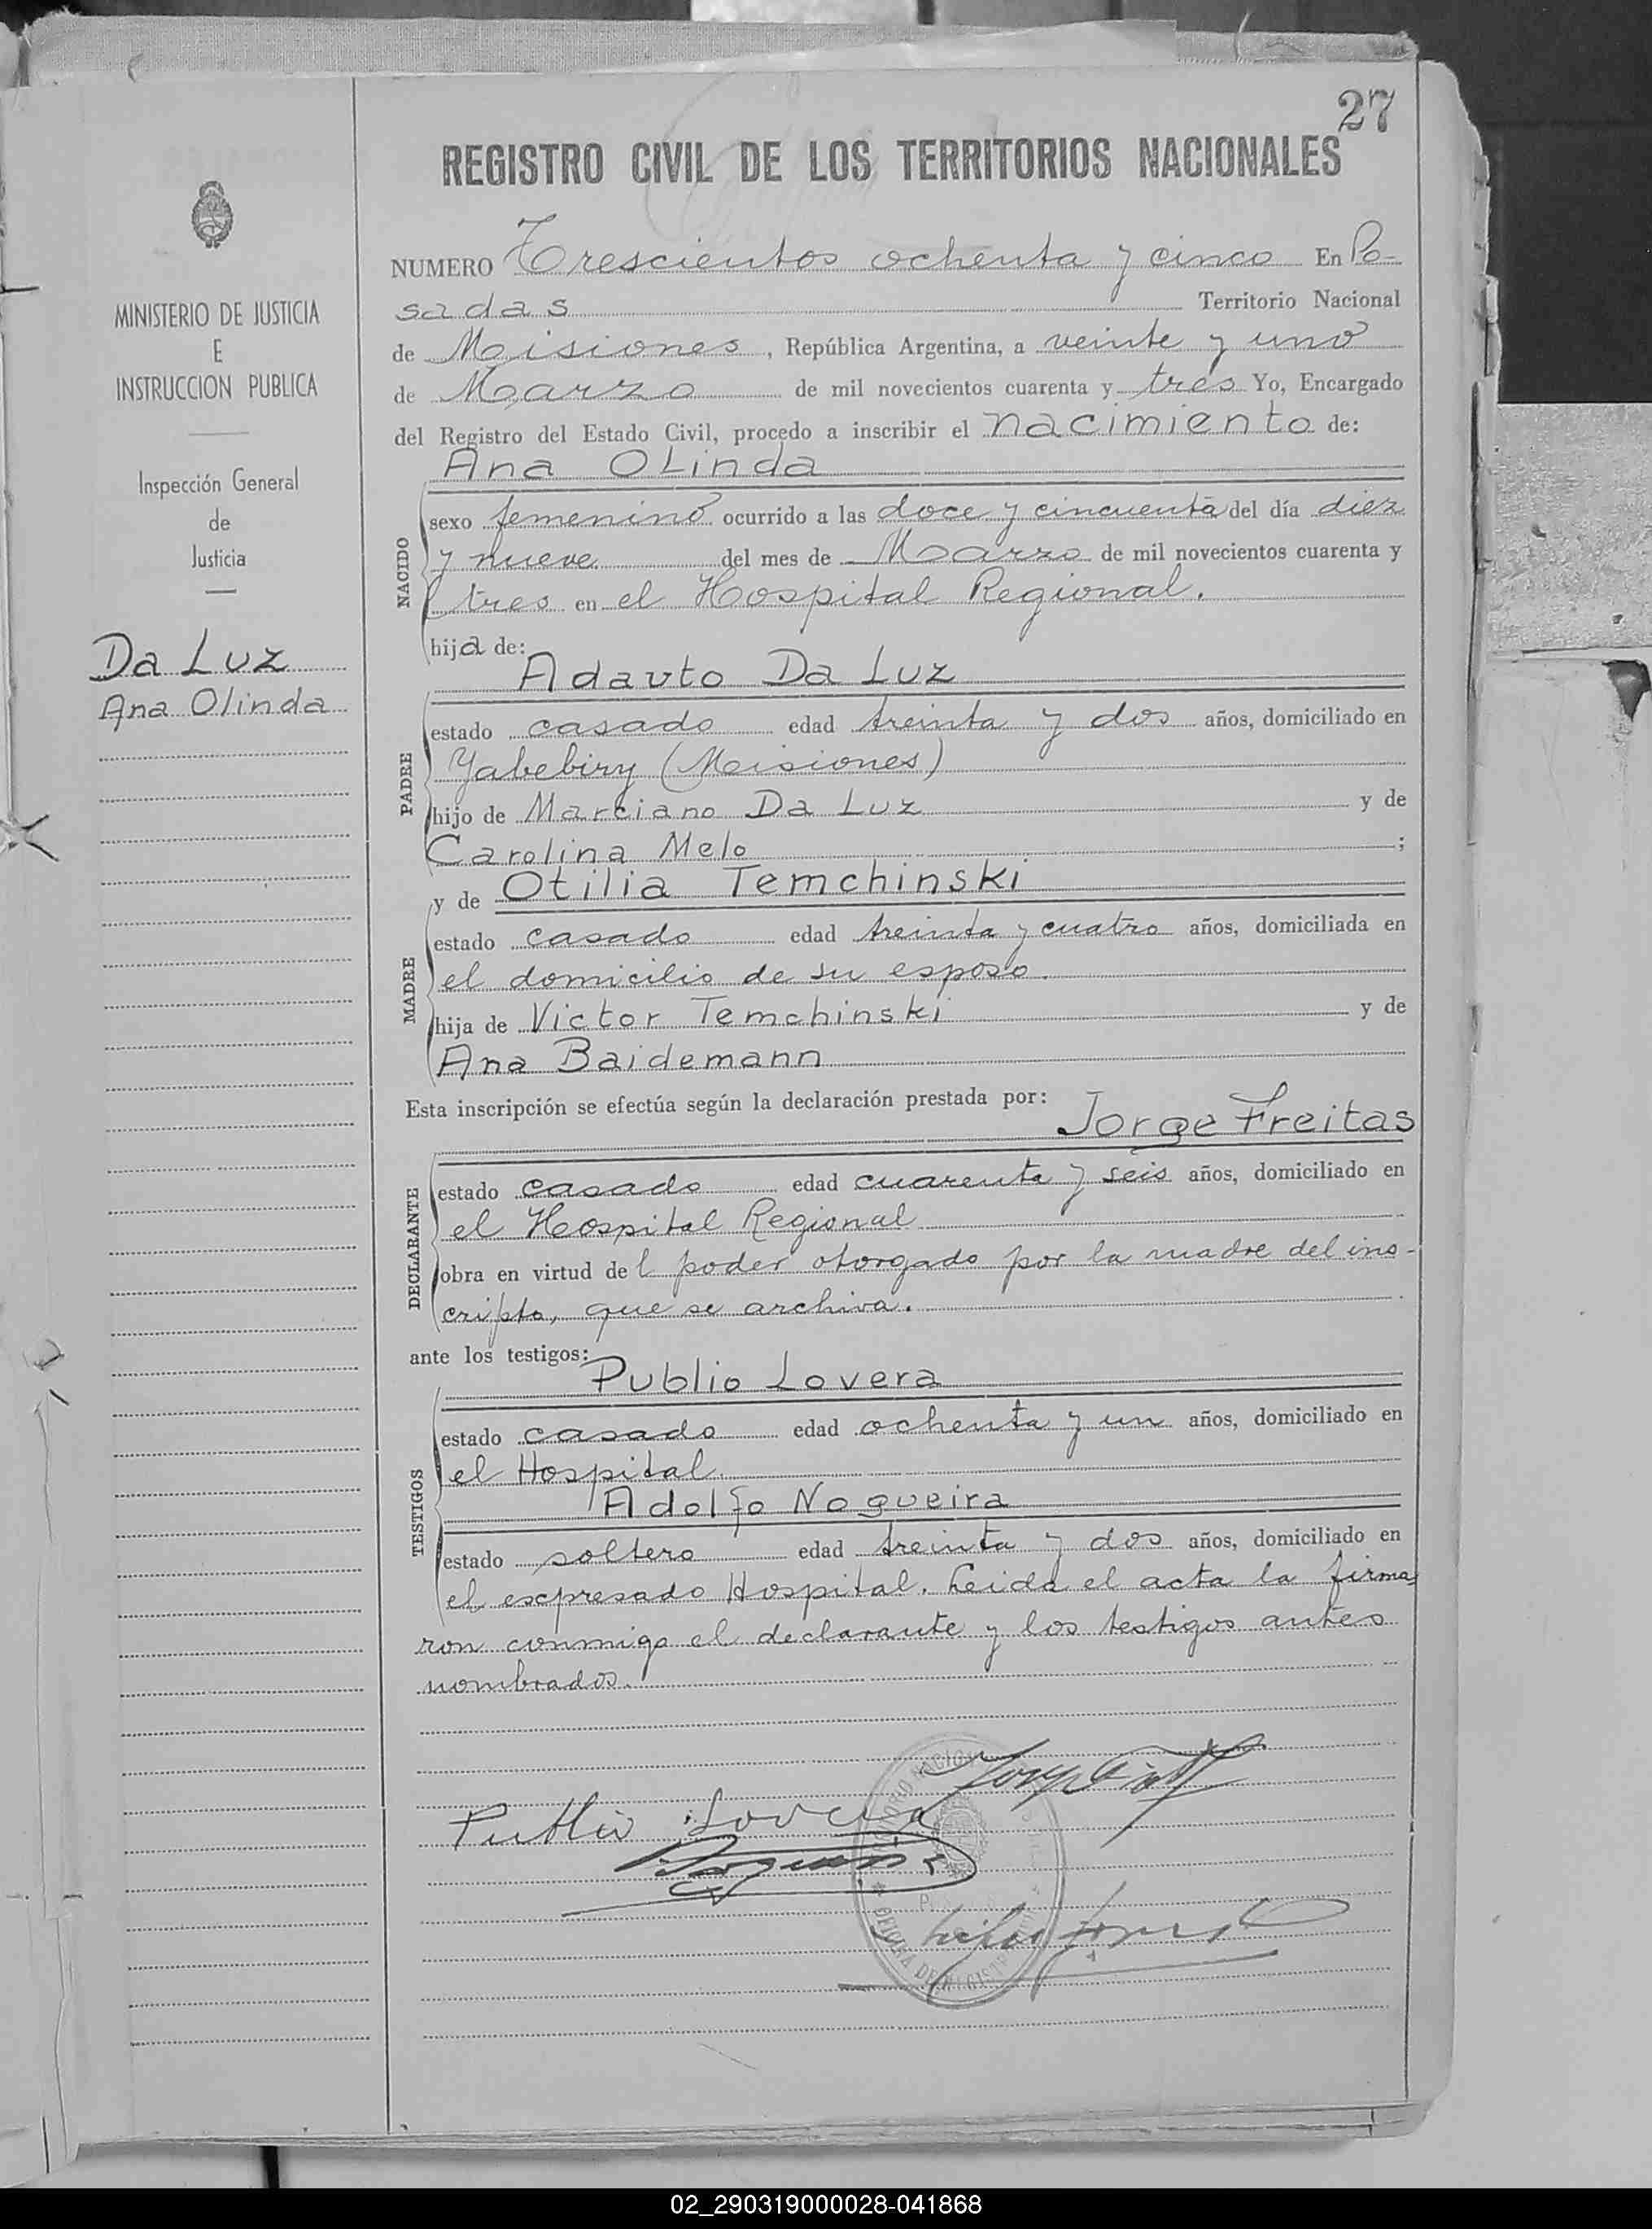 27
REGISTRO CIVIL DE LOS TERRITORIOS NACIONALES
MINISTERIO DE JUSTICIA
E
INSTRUCCION PUBLICA
Inspección General
de
Justicia
Da Luz
Ana Olinda
NUMERO Trescientos ochenta y cinco En Po-
sadas Territorio Nacional
de Misiones, República Argentina, a veinte y uno
de Marzo de mil novecientos cuarenta y tres Yo, Encargado
del Registro del Estado Civil, procedo a inscribir el nacimiento de:
Ana Olinda
NACIDO
sexo femenino ocurrido a las doce y cincuenta del día diez
y nueve del mes de Marzo de mil novecientos cuarenta y
tres en el Hospital Regional.
hija de:
Adauto Da Luz
PADRE
estado casado edad treinta y dos años, domiciliado en
Yabebiry (Misiones)
hijo de Marciano Da Luz y de
Carolina Melo ;
y de Otilia Temchinski
MADRE
estado casado edad treinta y cuatro años, domiciliada en
el domicilio de su esposo.
hija de Victor Temchinski y de
Ana Baidemann
Esta inscripción se efectúa según la declaración prestada por:
Jorge Freitas
DECLARANTE
estado casado edad cuarenta y seis años, domiciliado en
el Hospital Regional
obra en virtud del poder otorgado por la madre del ins-
cripto, que se archiva.
ante los testigos:
Publio Lovera
TESTIGOS
estado casado edad ochenta y un años, domiciliado en
el Hospital.
Adolfo Nogueira
estado soltero edad treinta y dos años, domiciliado en
el expresado Hospital. Leida el acta la firma
ron conmigo el declarante y los testigos antes
nombrados.
Publio Lovera
02_290319000028-041868